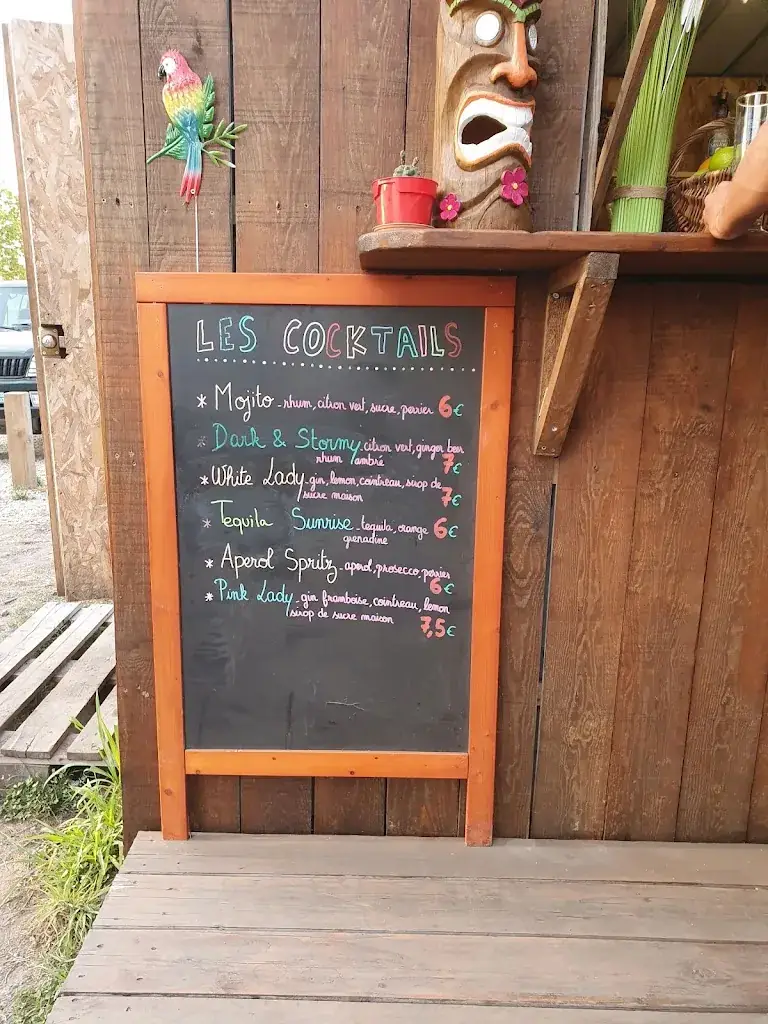 LES COCKTAILS
* Mojito - rhum, citron vert, sucre, perrier 6€
* Dark & Stormy - citron vert, ginger beer
rhum ambré 7€
* White Lady - gin, lemon, cointreau, sirop de
sucre maison 7€
* Tequila Sunrise - tequila, orange 6€
grenadine
* Aperol Spritz - aperol, prosecco, perrier
6€
* Pink Lady - gin framboise, cointreau, lemon
sirop de sucre maison 7,5€